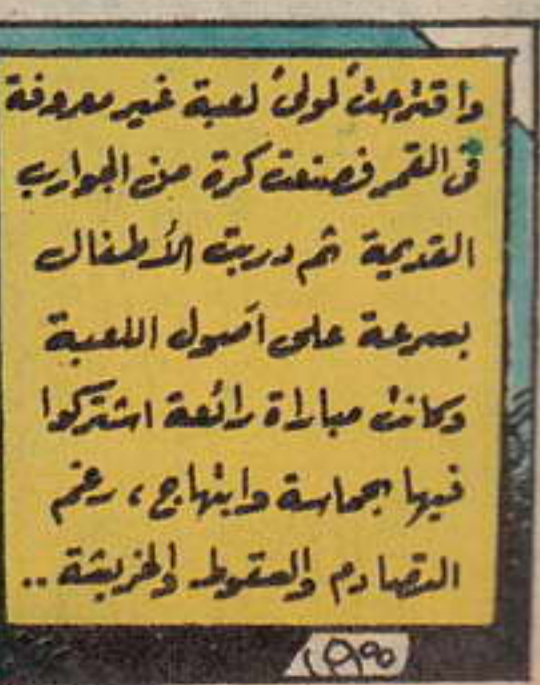 واقترحت لولى لعبة غير معروفة
فى القمر فصنعت كرة من الجوارب
القديمة ثم دربت الأطفال
بسرعة على أصول اللعبة
وكانت مباراة رائعة اشتركوا
فيها بحماسة وابتهاج، رغم
التصادم والسقوط والخربشة ..